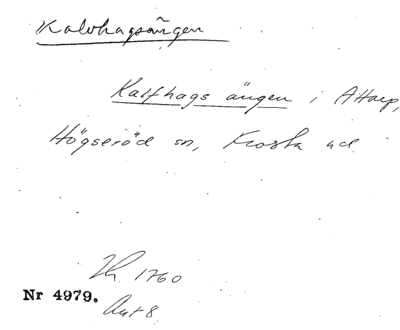 Kalvhagsängen
Kalfhags ängen i Attarp,
Högseröd sn, Frosta hd
1760
Nr 4979.
Akt 8